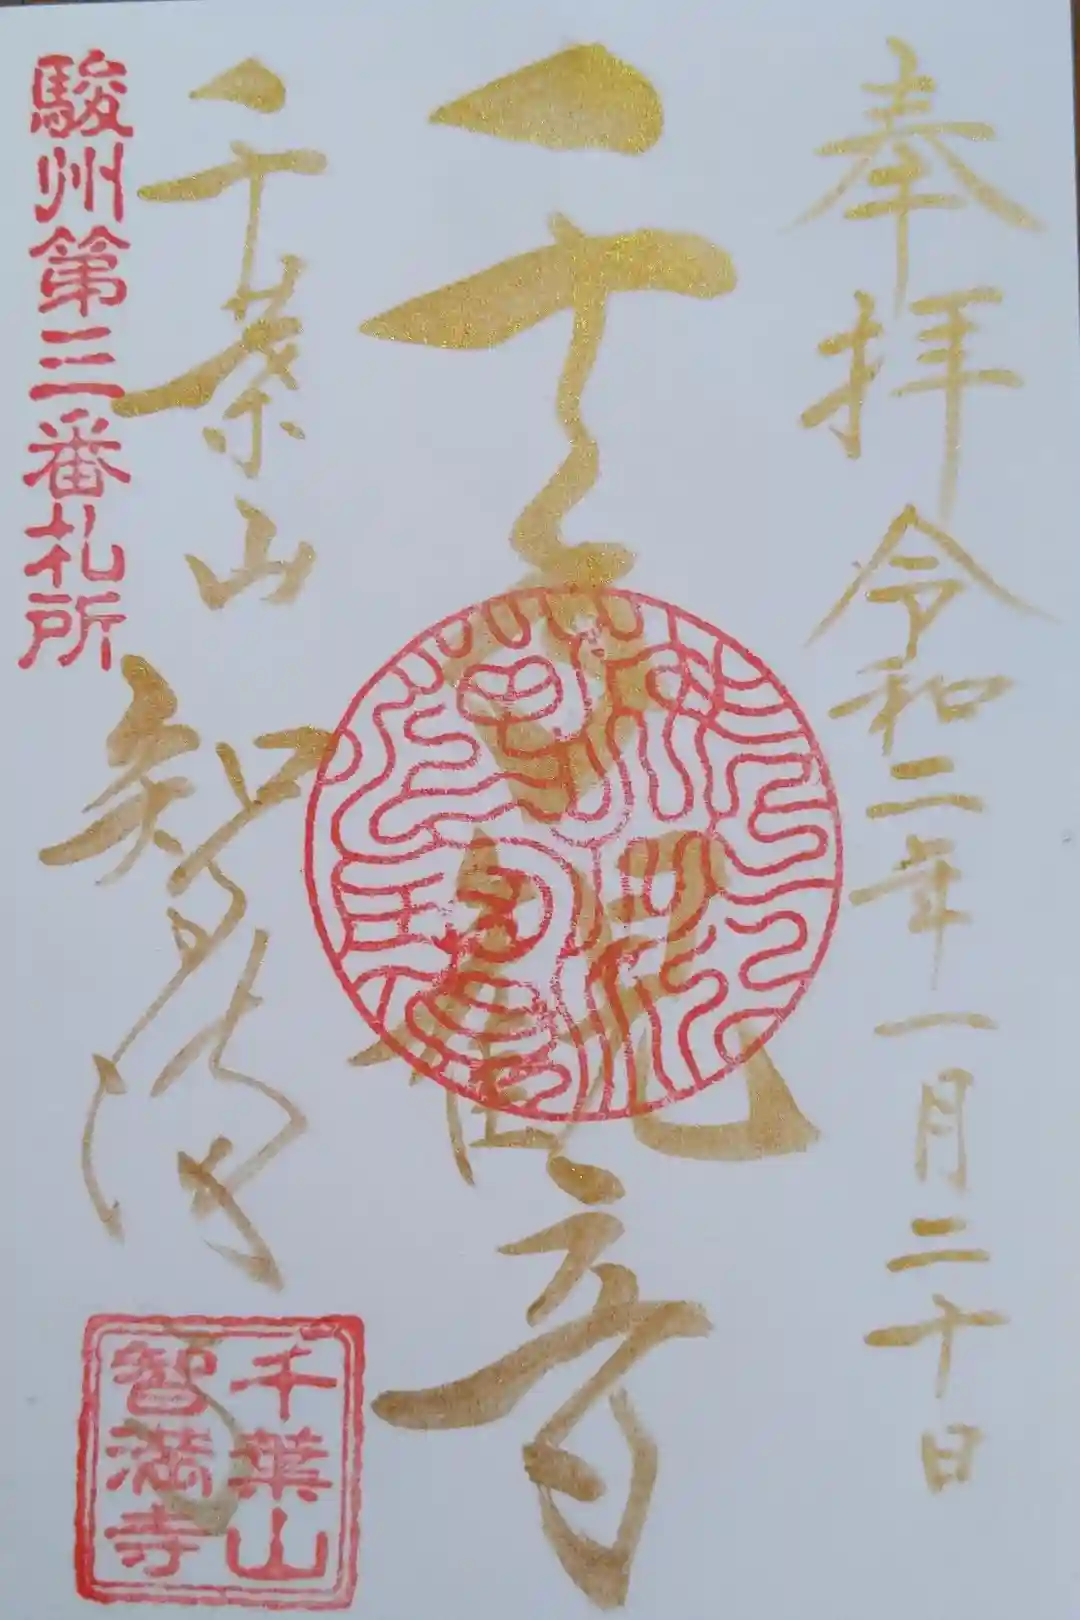 奉拝
令和二年一月二十日
千手観音
千葉山
智満寺
駿州第三番札所
千葉山
智満寺